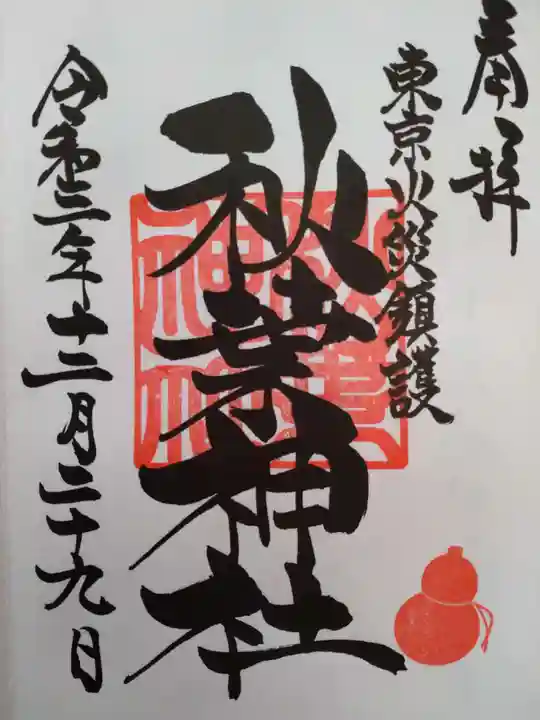 奉拝
東京火災鎮護
秋葉神社
令和三年十二月二十九日